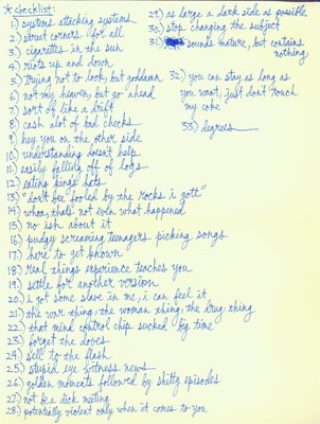 * checklist:
1.) systems attacking systems
2.) street corners for all
3.) cigarettes in the sun
4.) riots up and down
5.) trying not to look, but goddamn
6.) not my heaven, but go ahead
7.) sort of like a drift
8.) cash alot of bad checks
9.) hey you on the other side
10.) understanding doesn't help
11.) easily falling off of logs
12.) eating kings' hats
13.) "don't bee fooled by the rocks i gott"
14.) whoa, thats not even what happened
15.) no ish about it
16.) pudgy screaming teenagers picking songs
17.) here to get known
18.) real things experience teaches you
19.) settle for another version
20.) i got some slave in me, i can feel it
21.) the war thing, the woman thing, the drug thing
22.) that mind control chip sucked big time
23.) forget the doves
24.) sell to the flash
25.) stupid eye witness news
26.) golden moments followed by shitty episodes
27.) not be a dick meeting
28.) potentially violent only when it comes to you
29.) as large a dark side as possible
30.) stop changing the subject
31.) sounds mature, but contains
nothing
32.) you can stay as long as
you want, just don't touch
my coke
33.) degrees